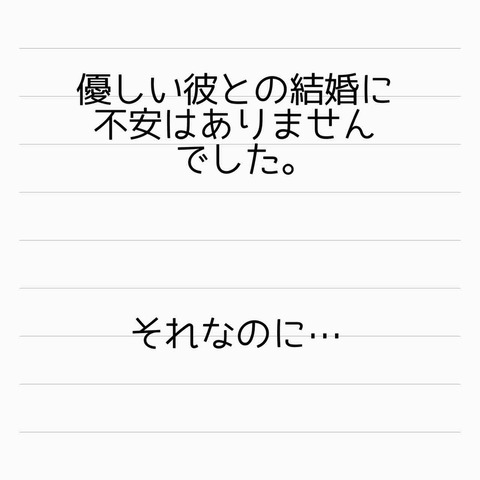 優しい彼との結婚に
不安はありません
でした。
それなのに…